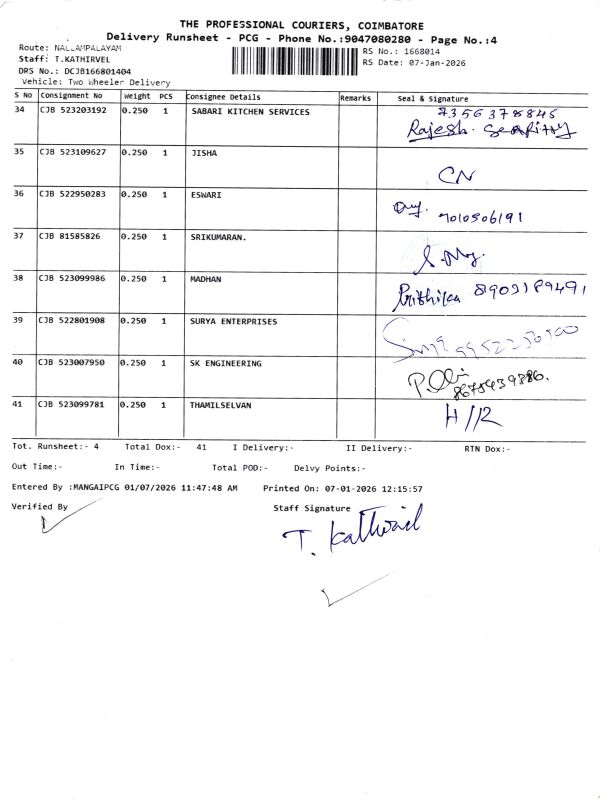 THE PROFESSIONAL COURIERS, COIMBATORE
Delivery Runsheet - PCG - Phone No.:9047080280 - Page No.:4
Route: NALLAMPALAYAM
Staff: T.KATHIRVEL
DRS No.: DCJB166801404
Vehicle: Two Wheeler Delivery
RS No.: 1668014
RS Date: 07-Jan-2026
S No Consignment No Weight PCS Consignee Details Remarks Seal & Signature
34 CJB 523203192 0.250 1 SABARI KITCHEN SERVICES 7356378845
Rajesh.
35 CJB 523109627 0.250 1 JISHA CN
36 CJB 522950283 0.250 1 ESWARI
37 CJB 81585826 0.250 1 SRIKUMARAN.
38 CJB 523099986 0.250 1 MADHAN Prithika 8903189491
39 CJB 522801908 0.250 1 SURYA ENTERPRISES
40 CJB 523007950 0.250 1 SK ENGINEERING
41 CJB 523099781 0.250 1 THAMILSELVAN H/R
Tot. Runsheet:- 4 Total Dox:- 41 I Delivery:- II Delivery:- RTN Dox:-
Out Time:- In Time:- Total POD:- Delvy Points:-
Entered By :MANGAIPCG 01/07/2026 11:47:48 AM Printed On: 07-01-2026 12:15:57
Verified By Staff Signature
T. Kathirvel